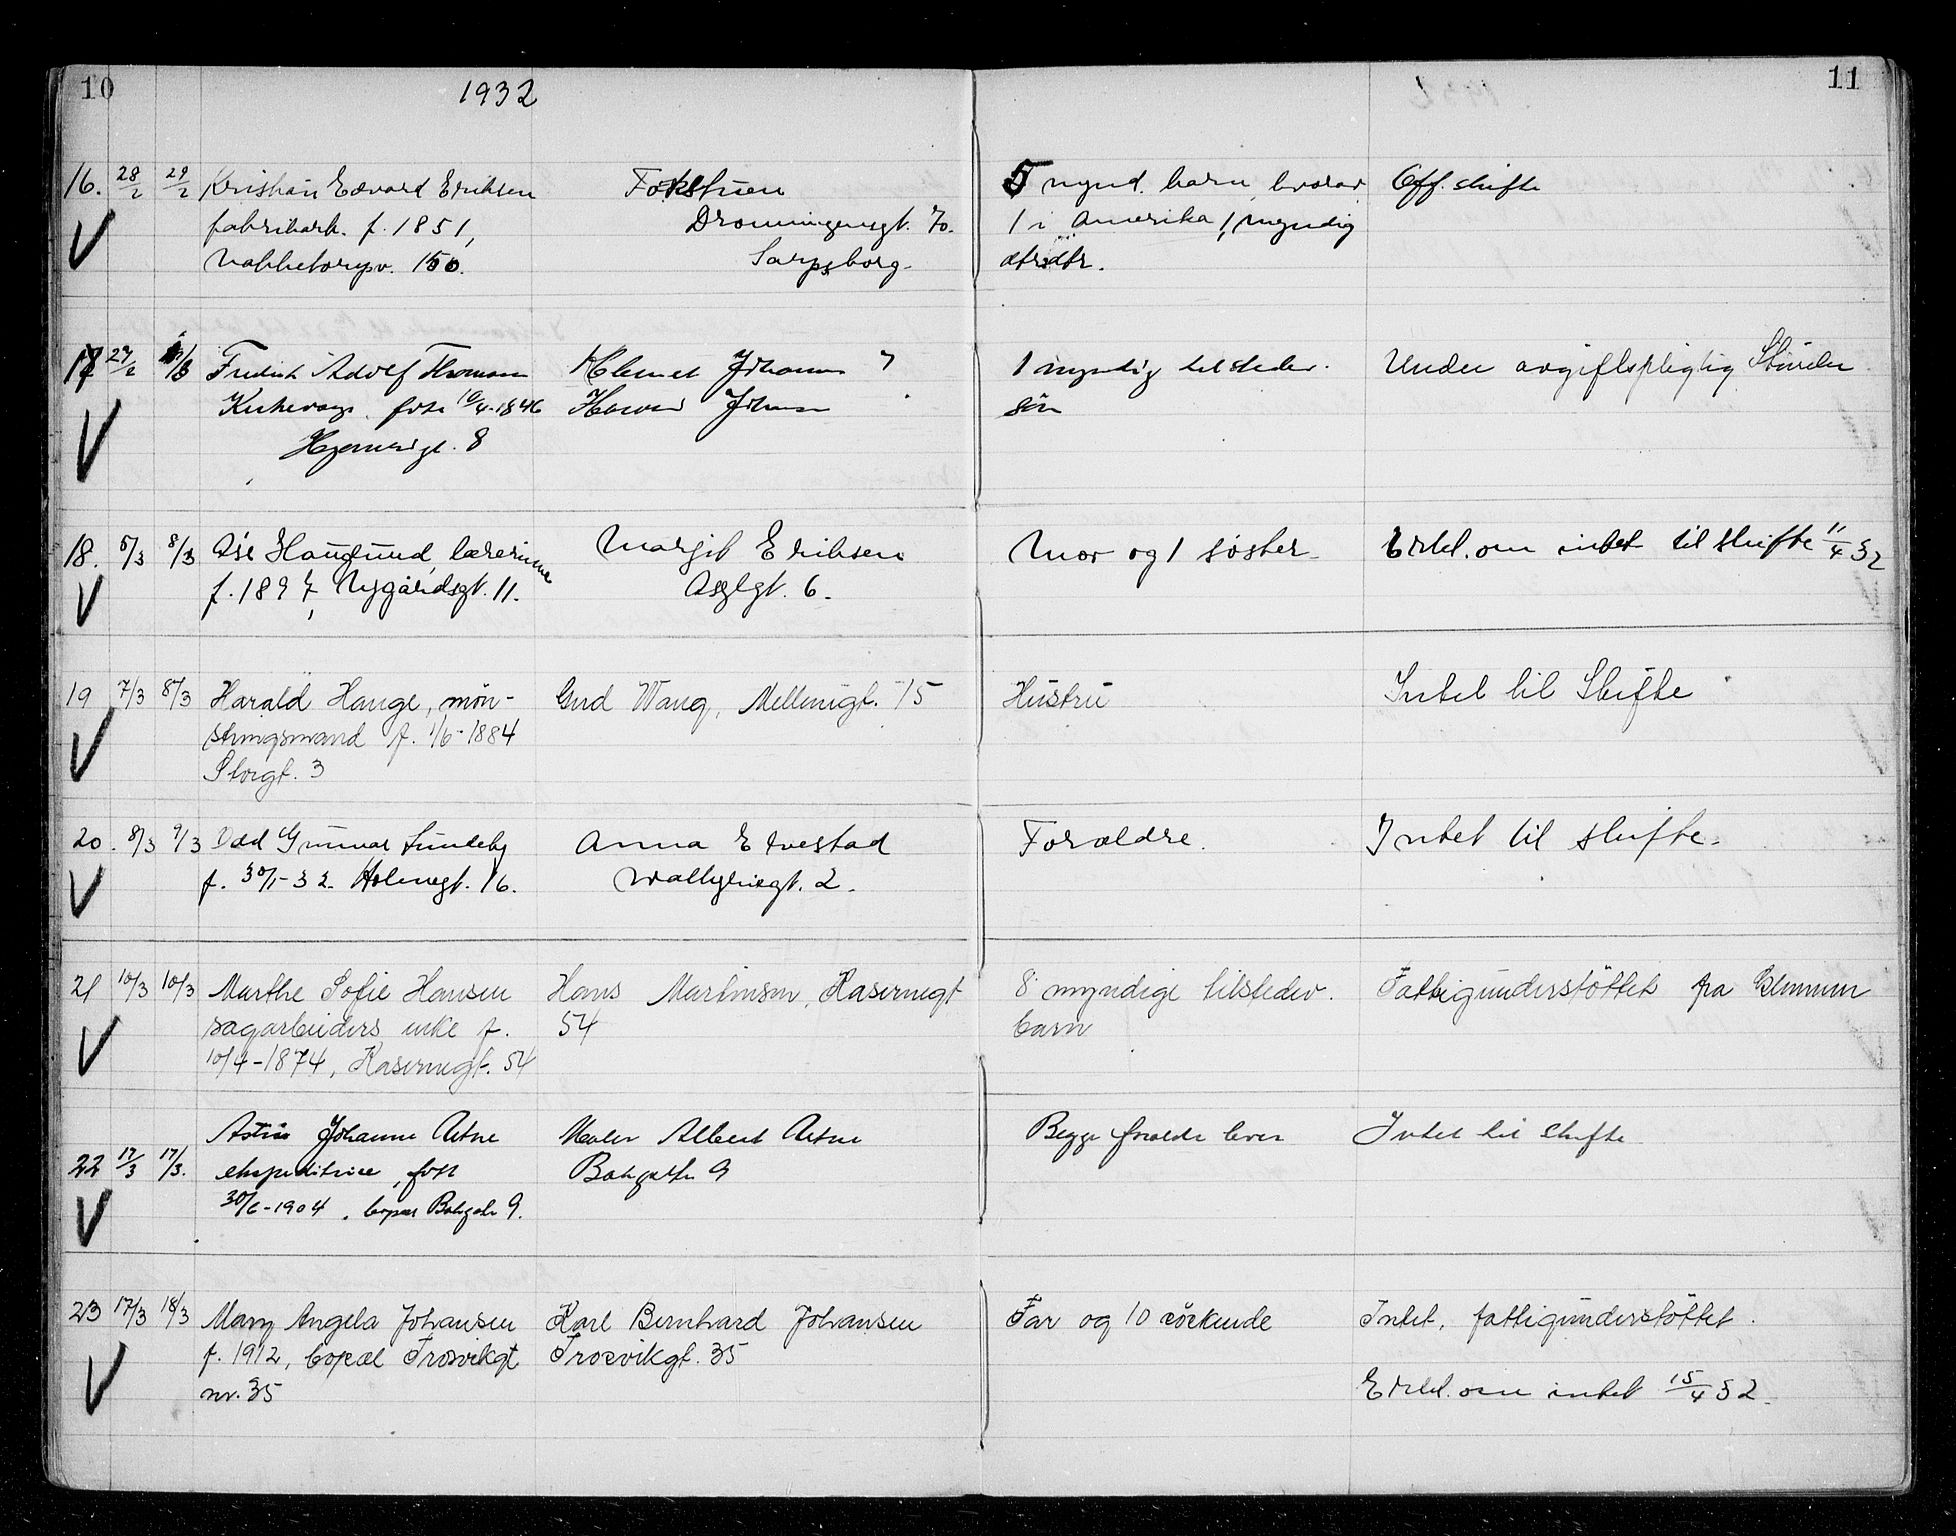 10
1932
11
16. 28/2 29/2 Kristian Edvard Eriksen
fabrikarb. f. 1851,
Nabbetorpv. 150.
Fokstuen
Dronningensgt. 70.
Sarpsborg.
5 mynd. barn, hvorav
1 i Amerika, 1 myndig
dtrdtr.
Off. skifte
17 27/2 Fredrik Adolf Thomassen
Kirkeverge, født 10/4-1846
gt. 8
Klemet Johannes
Johnsen
1 myndig tilstedev.
søn
Under avgiftspligtig Størrelse
18. 5/3 8/3 Åse Hauglund, lærerinne
f. 1897, Nygårdsgt. 11.
Margit Eriksen
Asylgt. 6.
Mor og 1 søster
Erkl. om intet til skifte 11/4 32
19 7/3 8/3 Harald Hauge, møn-
stringsmand f. 1/6-1884
Storgt. 3
Gud Wang, Mellemgt. 15
Hustru
Intet til Skifte
20. 8/3 9/3 Odd Gunnar Sundeby
f. 30/1-32. Holmegt. 16.
Anna Etvestad
Walkyriegt. 2.
Forældre.
Intet til skifte.
21 10/3 10/3 Marthe Sofie Hansen
sagarbeiders enke f.
10/4-1874, Kasernegt. 54
Hans Martinsen, Kasernegt
54
8 myndige tilstedev.
barn
Fattigunderstöttet fra Glemmen
Johanne Aetne
22 17/3 17/3. ekspeditrice, født
30/6-1904, bopæl 9.
Maler Albert Aetne
9
Begge forældre lever
Intet til skifte
23 17/3 18/3 Mary Angela Johansen
f. 1912, bopæl Trosvikgt
nr. 35
Karl Bernhard Johansen
Trosvikgt. 35
Far og 10 søskende
Intet, fattigunderstöttet.
Erkl. om intet 15/4 32.